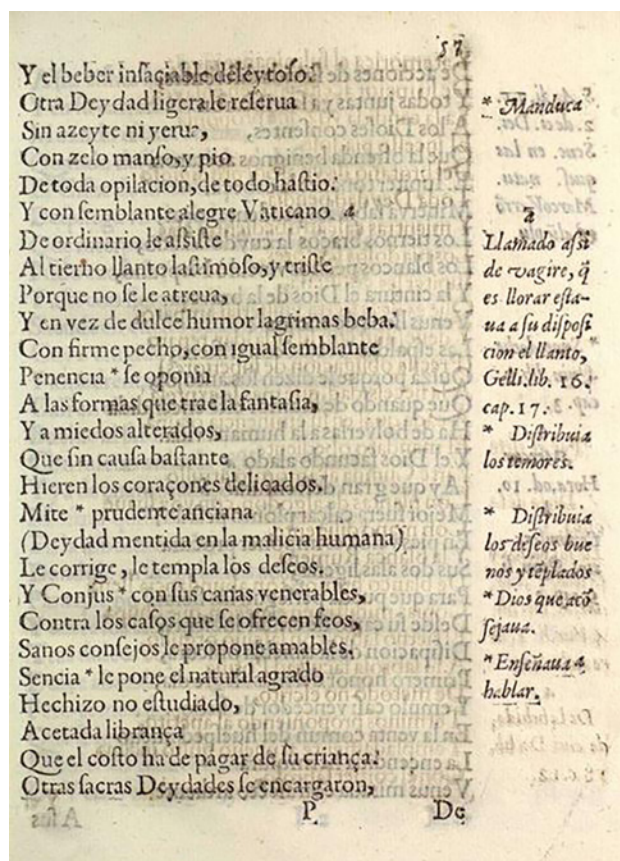 57
Y el beber insaçiable deleytoso.
Otra Deydad ligera le reserua
Sin azeyte ni yerua,
Con zelo manso, y pio
De toda opilacion, de todo hastio.
Y con semblante alegre Vaticano a
De ordinario le assiste
Al tierno llanto lastimoso, y triste
Porque no se le atreua,
Y en vez de dulce humor lagrimas beba.
Con firme pecho, con igual semblante
Penencia * se oponia
A las formas que trae la fantasia,
Y a miedos alterados,
Que sin causa bastante
Hieren los coraçones delicados.
Mite * prudente anciana
(Deydad mentida en la malicia humana)
Le corrige, le templa los deseos.
Y Conjus * con sus canas venerables,
Contra los casos que se ofrecen feos,
Sanos consejos le propone amables.
Sencia * le pone el natural agrado
Hechizo no estudiado,
Acetada librança
Que el costo ha de pagar de su criança.
Otras sacras Deydades se encargaron,
P. De
* Manduca
a
Llamado assi
de vagire, q̃
es llorar esta-
ua a su disposi
cion el llanto,
Gelli. lib. 16.
cap. 17.
* Distribuia
los temores.
* Distribuia
los deseos bue
nos y tẽplados
* Dios que acõ
sejaua.
* Enseñaua a
hablar.